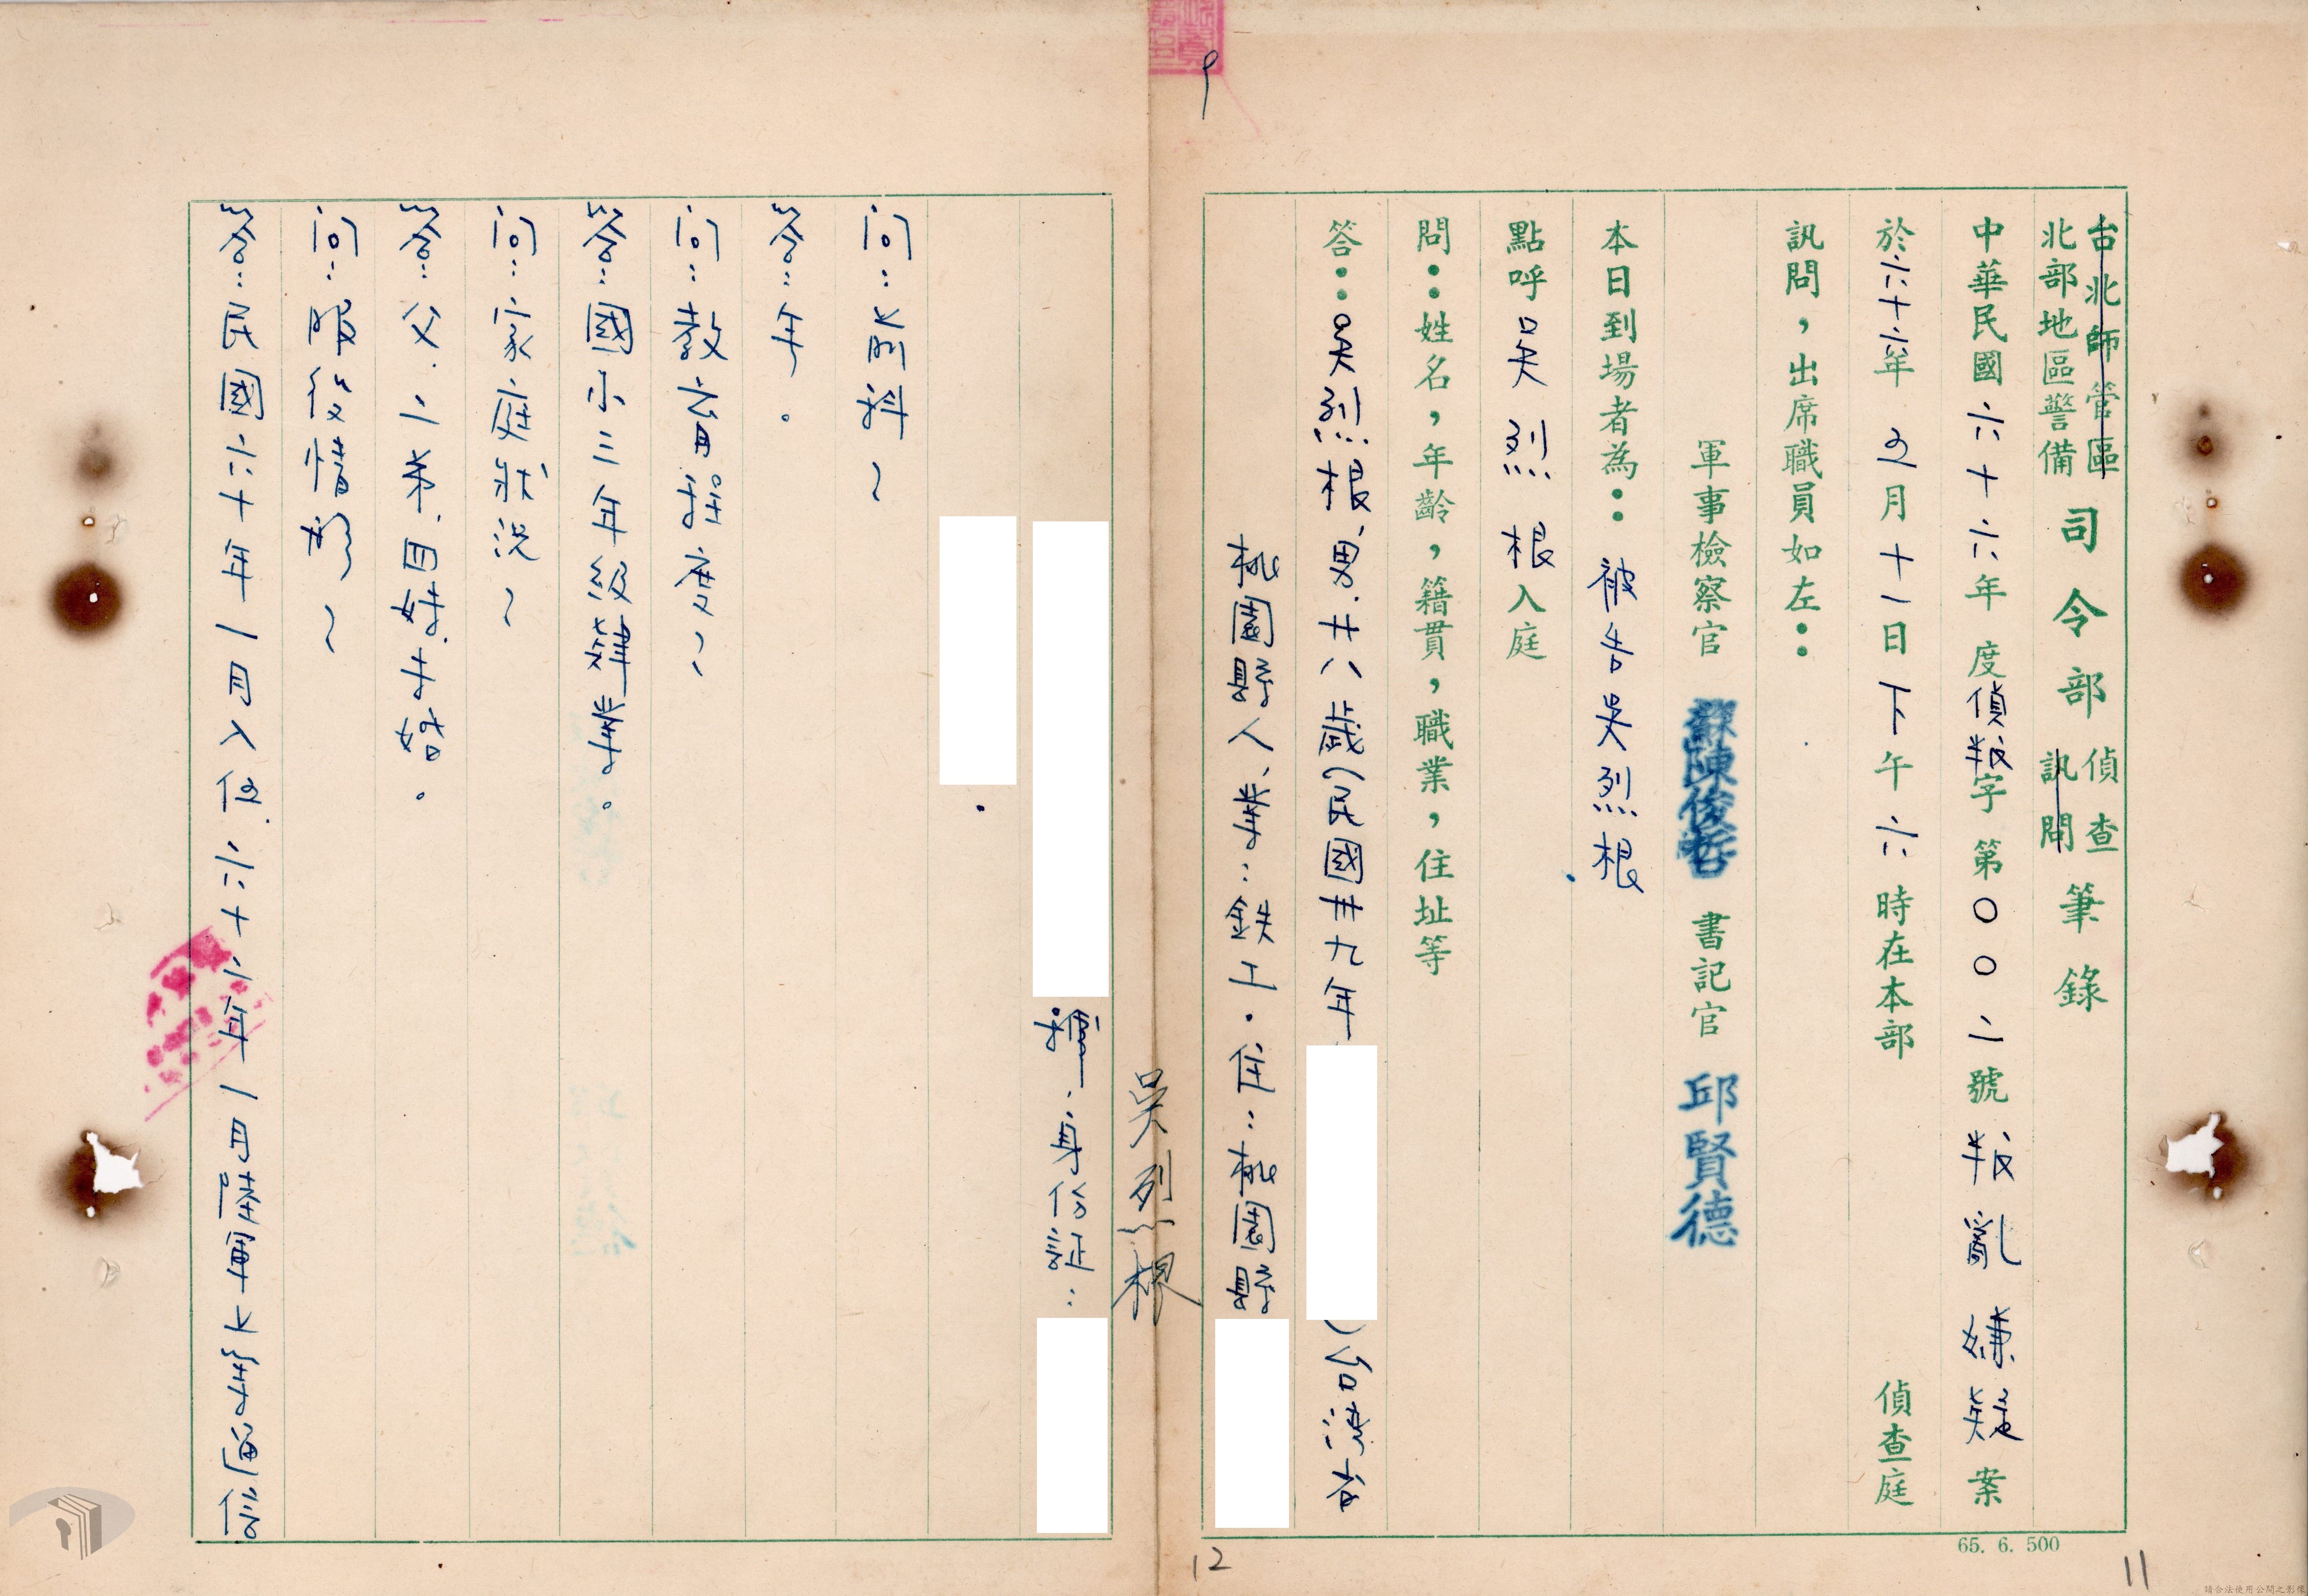 台北師管區
北部地區警備
司令部
偵查
訊問
筆錄
中華民國六十六年度偵叛字第〇〇二號叛亂嫌疑案
於六十六年五月十一日下午六時在本部偵查庭
訊問，出席職員如左：
軍事檢察官 陳俊哲 書記官 邱賢德
本日到場者為：被告吳烈根
點呼吳烈根入庭
問：姓名，年齡，籍貫，職業，住址等
答：吳烈根、男、廿八歲（民國卅九年）台灣省
桃園縣人、業：鉄工．住：桃園縣
吳烈根
身份証：
问：前科？
答：無。
问：教育程度？
答：國小三年級肄業。
问：家庭狀況？
答：父、二弟、四妹、未婚。
问：服役情形？
答：民國六十年一月入伍、六十二年一月陸軍上等通信
65. 6. 500
11
12
9
請合法使用公開之影像